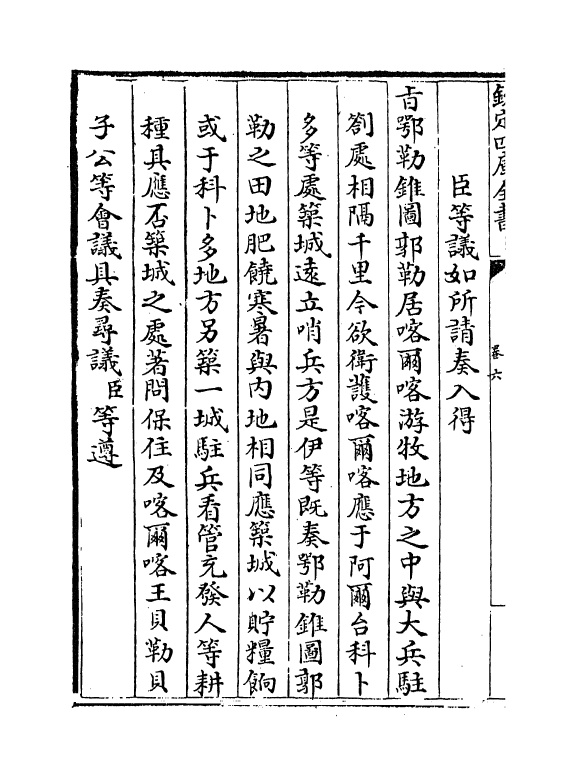 欽定四庫全書
卷六
臣等議如所請奏入得
旨鄂勒錐圖郭勒居喀爾喀游牧地方之中與大兵駐
劄處相隔千里今欲衛護喀爾喀應于阿爾台科卜
多等處築城遠立哨兵方是伊等既奏鄂勒錐圖郭
勒之田地肥饒寒暑與内地相同應築城以貯糧餉
或于科卜多地方另築一城駐兵看管充發人等耕
種具應否築城之處著問保住及喀爾喀王貝勒貝
子公等會議具奏尋議臣等遵